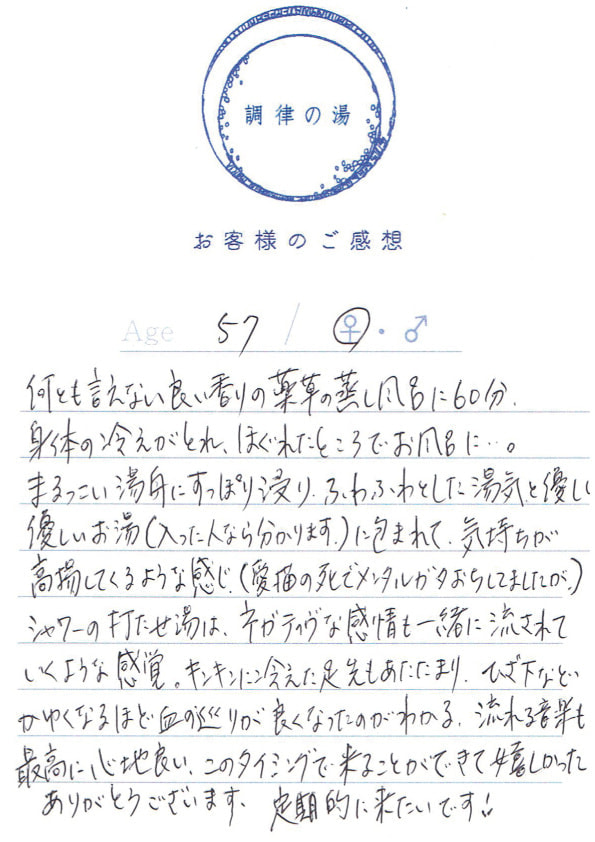 調律の湯
お客様のご感想
Age 57 / ♀・♂
何とも言えない良い香りの薬草の蒸し風呂に60分.
身体の冷えがとれ、ほぐれたところでお風呂に…。
まるっこい湯舟にすっぽり浸り.ふわふわとした湯気と優しい
優しいお湯(入った人なら分かります.)に包まれて.気持ちが
高揚してくるような感じ.(愛猫の死でメンタルガタおちしてましたが.)
シャワーの打たせ湯は、ネガティヴな感情も一緒に流されて
いくような感覚。キンキンに冷えた足先もあたたまり.ひざ下など
かゆくなるほど血の巡りが良くなったのがわかる.流れる音楽も
最高に心地良い.このタイミングで来ることができて嬉しかった
ありがとうございます、定期的に来たいです!!